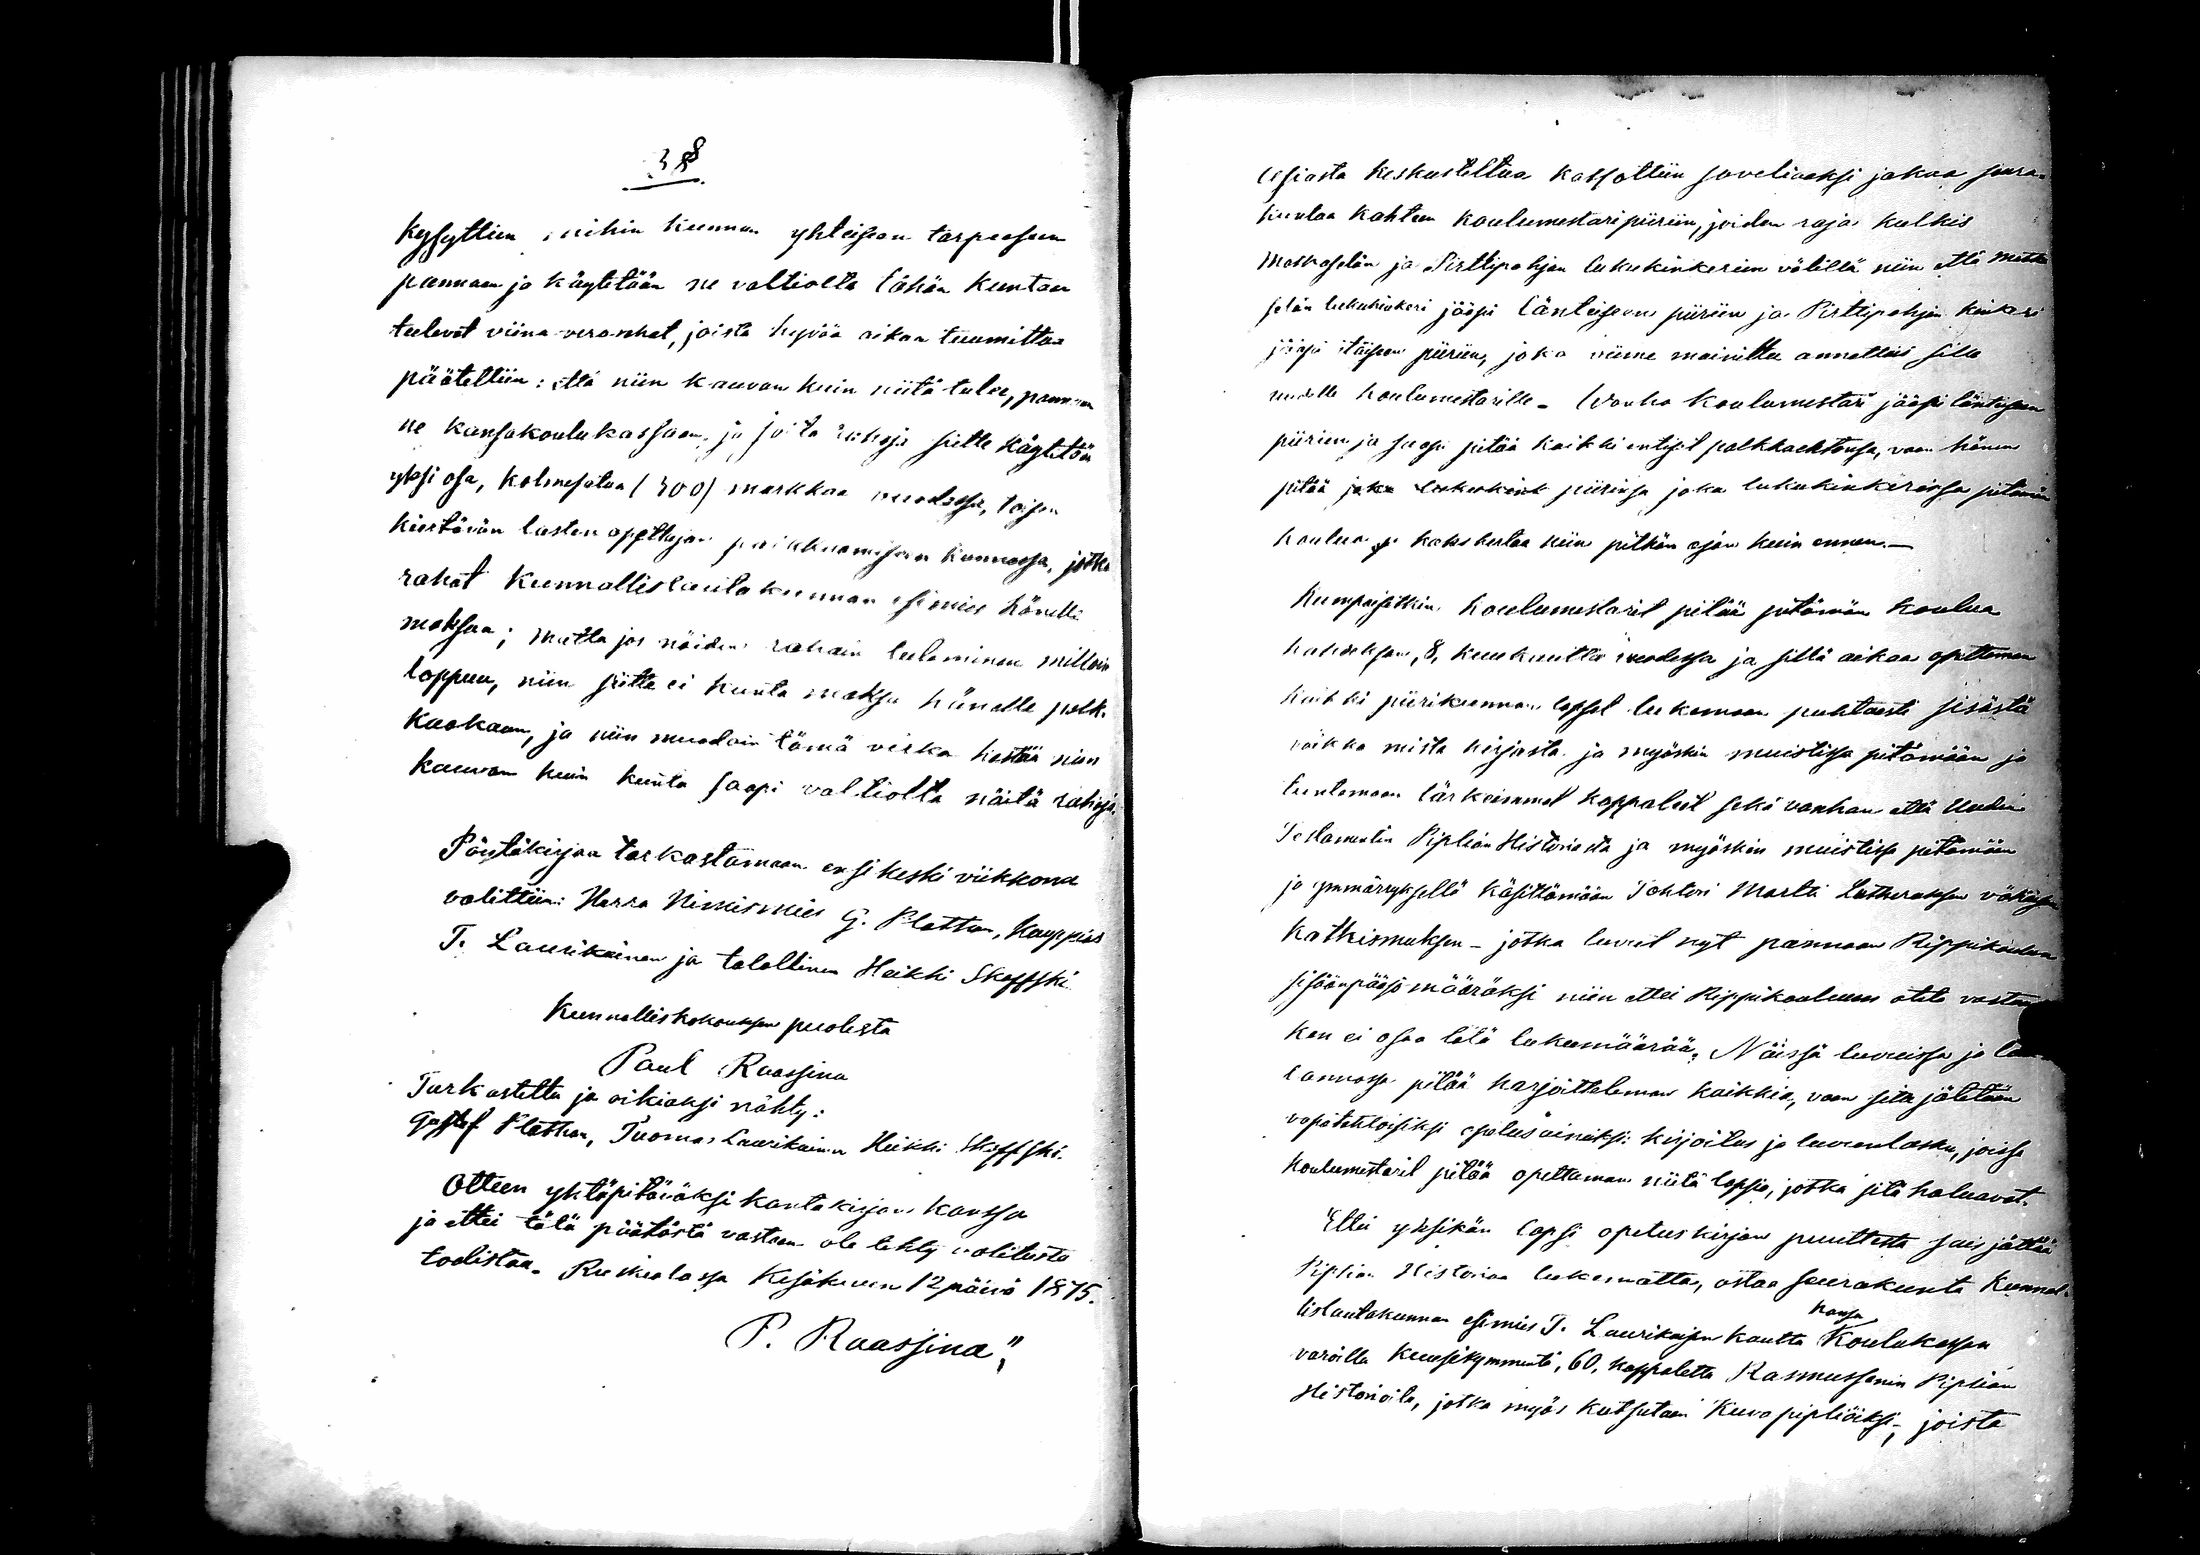 3 §
kysyttiin, mihin kunnan yhteiseen tarpeeseen
pannaan ja käytetään ne valtiolta tähän kuntaan
tulevat viina-verorahat, joista hyvää aikaa tuumittua
päätettiin: että niin kauvan kuin niitä tulee, pannaan
ne kansakoulukassaan, ja joita rahoja sille käytetään
yksi osa, kolmesataa (300) markkaa vuodessa, toisen
kiertävän lasten opettajan palkkaamiseen kunnassa, jotka
rahat Kunnallislautakunnan esimies hänelle
maksaa; mutta jos näiden rahain tuleminen milloin
loppuu, niin siitte ei kunta maksa hänelle palk-
kaakaan, ja niin muodoin tämä virka kestää niin
kauvan kuin kunta saapi valtiolta näitä rahoja.
Pöytäkirjaa tarkastamaan ensi keski viikkona
valittiin: Herra Nimismies G. Plathan, Kauppias
T. Laurikainen ja talollinen Heikki Skoffski
Kunnalliskokouksen puolesta
Paul Raassina
Tarkastettu ja oikiaksi nähty:
Gustaf Plathan, Tuomas Laurikainen Heikki Skoffski.
Otteen yhtäpitäväksi kantakirjan kanssa
ja ettei tätä päätöstä vastaan ole tehty valitusta
todistaa. Ruskealassa Kesäkuun 12 päivä 1875.
P. Raassina"
Asiasta keskusteltua katsottiin soveliaaksi jakaa seura-
kuntaa kahteen koulumestaripiiriin, joiden raja kulkis
Matkaselän ja Pirttipohjan lukukinkerien välillä niin että Matka-
selän lukukinkeri jääpi läntiseen piiriin ja Pirttipohjan kinkeri
jääpi itäiseen piiriin, joka viime mainittu annettais sille
uudelle koulumestarille. Vanha koulumestari jääpi läntiseen
piiriin ja saapi pitää kaikki entiset palkkaehtonsa, vaan hänen
pitää joka lukukink piirissä joka lukukinkerissä pitämän
koulua ja kaks kertaa niin pitkän ajan kuin ennen.—
Kumpaisetkin koulumestarit pitää pitämän koulua
kahdeksan, 8, kuukautta vuodessa ja sillä aikaa opettaman
kaikki piirikunnan lapset lukemaan puhtaasti sisästä
vaikka mista kirjasta ja myöskin muistissa pitämään ja
tuntemaan tärkeimmät kappaleet sekä vanhan että Uuden
Testamentin Piplian Historiasta ja myöskin muistissa pitämään
ja ymmärryksellä käsittämään Tohtori Martti Lutheruksen vähäsen
Katkismuksen – jotka luvut nyt pannaan Rippikoulun
sisäänpääsö määräksi niin ettei Rippikouluun oteta vastaan
ken ei osaa tätä lukumäärää. Näissä luvuissa ja lau-
lannossa pitää harjoitteleman kaikkia, vaan sitä jätetään
vapatehtoisiksi opetusaineiksi: kirjoitus ja luvunlasku, joissa
koulumestarit pitää opettaman niitä lapsia, jotka sitä haluavat.
Ettei yhsikän lapsi opetuskirjan puuttesta sais jättää
Piplian Historiaa lukematta, ostaa seurakunta Kunnal-
lislautakunnan esimies T. Laurikaisen kautta kansa Koulukassan
varoilla kuusikymmentä, 60, kappaletta Rasmussenin Piplian
Historioita, jotka myös kutsutaan Kuvapipliöiksi, joista